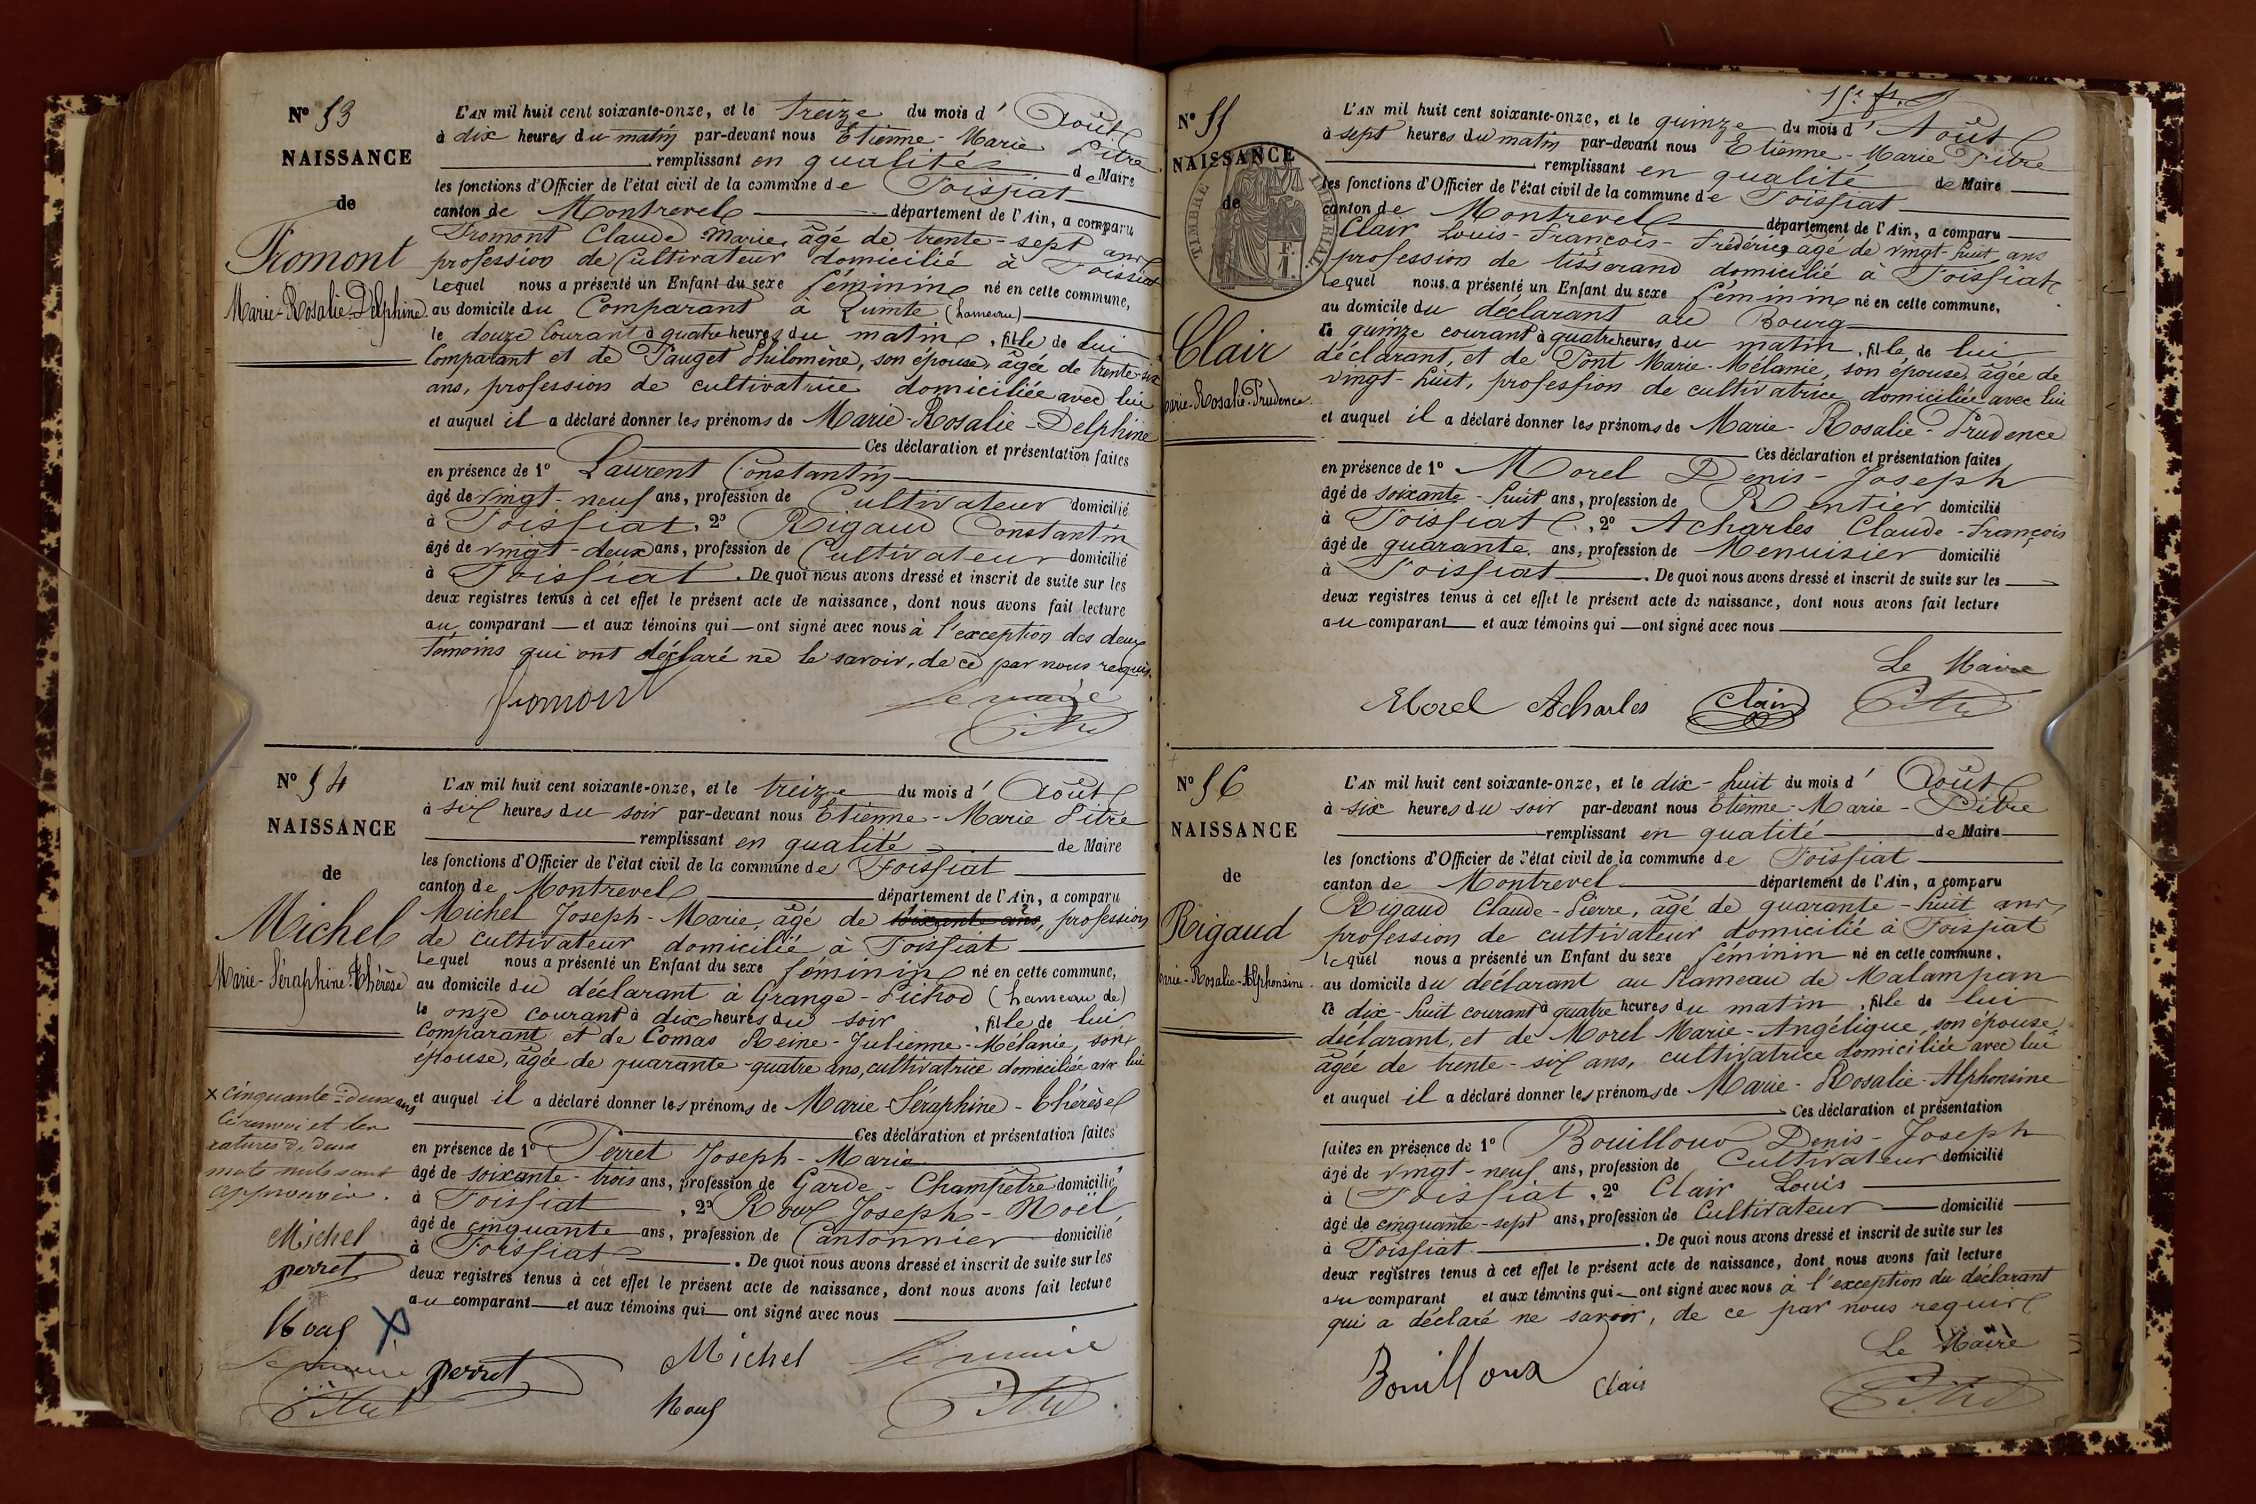 N° 53
NAISSANCE
de
Fromont
Marie-Rosalie-Delphine
L'AN mil huit cent soixante-onze, et le treize du mois d' Août
à dix heures du matin par-devant nous Etienne-Marie Pitre
remplissant en qualité de Maire
les fonctions d'Officier de l'état civil de la commune de Foissiat
canton de Montrevel département de l'Ain, a comparu
Fromont Claude Marie, âgé de trente-sept ans
profession de Cultivateur domicilié à Foissiat
lequel nous a présenté un Enfant du sexe féminin né en cette commune,
au domicile du Comparant à Quinte (hameau)
le douze courant à quatre heures du matin, fille de lui
Comparant et de Pauget Philomène, son épouse, âgée de trente-six
ans, profession de cultivatrice domiciliée avec lui
et auquel il a déclaré donner les prénoms de Marie-Rosalie-Delphine
Ces déclaration et présentation faites
en présence de 1° Laurent Constantin
âgé de vingt-neuf ans, profession de Cultivateur domicilié
à Foissiat, 2° Rigaud Constantin
âgé de vingt-deux ans, profession de Cultivateur domicilié
à Foissiat. De quoi nous avons dressé et inscrit de suite sur les
deux registres tenus à cet effet le présent acte de naissance, dont nous avons fait lecture
au comparant et aux témoins qui ont signé avec nous à l'exception des deux
témoins qui ont déclaré ne le savoir, de ce par nous requis.
Fromont
Le maire
Pitre
N° 54
NAISSANCE
de
Michel
Marie-Séraphine-Thérèse
L'AN mil huit cent soixante-onze, et le treize du mois d' Août
à six heures du soir par-devant nous Etienne-Marie Pitre
remplissant en qualité de Maire
les fonctions d'Officier de l'état civil de la commune de Foissiat
canton de Montrevel département de l'Ain, a comparu
Michel Joseph-Marie, âgé de soixante ans, profession
de cultivateur domicilié à Foissiat
lequel nous a présenté un Enfant du sexe féminin né en cette commune,
au domicile du déclarant à Grange-Pichod (hameau de)
le onze courant à dix heures du soir, fille de lui
Comparant et de Comas Reine-Julienne-Mélanie, son
épouse, âgée de quarante-quatre ans, cultivatrice domiciliée avec lui
et auquel il a déclaré donner les prénoms de Marie Séraphine-Thérèse
Ces déclaration et présentation faites
en présence de 1° Perret Joseph-Marie
âgé de soixante-trois ans, profession de Garde-Champêtre domicilié
à Foissiat, 2° Roux Joseph-Noël
âgé de cinquante ans, profession de Cantonnier domicilié
à Foissiat. De quoi nous avons dressé et inscrit de suite sur les
deux registres tenus à cet effet le présent acte de naissance, dont nous avons fait lecture
au comparant et aux témoins qui ont signé avec nous
x cinquante-deux ans
le renvoi et les
ratures de deux
mots nuls sont
approuvés.
Michel
perret
Roux
Le maire
Pitre
perret
Michel
Roux
Le maire
Pitre
15e f.
N° 55
NAISSANCE
de
TIMBRE IMPÉRIAL
1 F
Clair
Marie-Rosalie-Prudence
L'AN mil huit cent soixante-onze, et le quinze du mois d' Août
à sept heures du matin par-devant nous Etienne-Marie Pitre
remplissant en qualité de Maire
les fonctions d'Officier de l'état civil de la commune de Foissiat
canton de Montrevel département de l'Ain, a comparu
Clair Louis-François-Frédéric, âgé de vingt-huit ans
profession de tisserand domicilié à Foissiat
lequel nous a présenté un Enfant du sexe féminin né en cette commune,
au domicile du déclarant au Bourg
le quinze courant à quatre heures du matin, fille de lui
déclarant, et de Pont Marie-Mélanie, son épouse, âgée de
vingt-huit, profession de cultivatrice domiciliée avec lui
et auquel il a déclaré donner les prénoms de Marie-Rosalie-Prudence
Ces déclaration et présentation faites
en présence de 1° Morel Denis-Joseph
âgé de soixante-huit ans, profession de Rentier domicilié
à Foissiat, 2° Acharles Claude-François
âgé de quarante ans, profession de Menuisier domicilié
à Foissiat. De quoi nous avons dressé et inscrit de suite sur les
deux registres tenus à cet effet le présent acte de naissance, dont nous avons fait lecture
au comparant et aux témoins qui ont signé avec nous
Le Maire
Morel Acharles Clair Pitre
N° 56
NAISSANCE
de
Rigaud
Marie-Rosalie-Alphonsine
L'AN mil huit cent soixante-onze, et le dix-huit du mois d' Août
à six heures du soir par-devant nous Etienne-Marie-Pitre
remplissant en qualité de Maire
les fonctions d'Officier de l'état civil de la commune de Foissiat
canton de Montrevel département de l'Ain, a comparu
Rigaud Claude-Pierre, âgé de quarante-huit ans
profession de cultivateur domicilié à Foissiat
lequel nous a présenté un Enfant du sexe féminin né en cette commune,
au domicile du déclarant au hameau de Malampan
le dix-huit courant à quatre heures du matin, fille de lui
déclarant, et de Morel Marie-Angélique, son épouse,
âgée de trente-six ans, cultivatrice domiciliée avec lui
et auquel il a déclaré donner les prénoms de Marie-Rosalie-Alphonsine
Ces déclaration et présentation
faites en présence de 1° Bouilloux Denis-Joseph
âgé de vingt-neuf ans, profession de Cultivateur domicilié
à Foissiat, 2° Clair Louis
âgé de cinquante-sept ans, profession de Cultivateur domicilié
à Foissiat. De quoi nous avons dressé et inscrit de suite sur les
deux registres tenus à cet effet le présent acte de naissance, dont nous avons fait lecture
au comparant et aux témoins qui ont signé avec nous à l'exception du déclarant
qui a déclaré ne savoir, de ce par nous requis
Le Maire
Bouilloux Clair Pitre